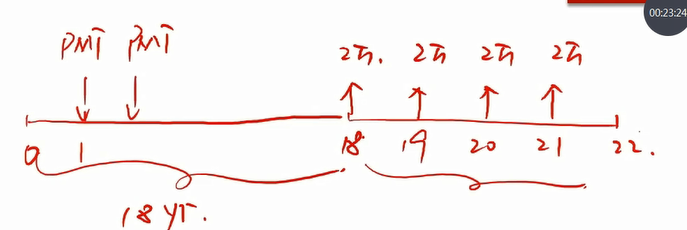 00:23:24
PMT PMT
2万. 2万 2万 2万
0 1 18. 19 20 21 22.
18 yr.